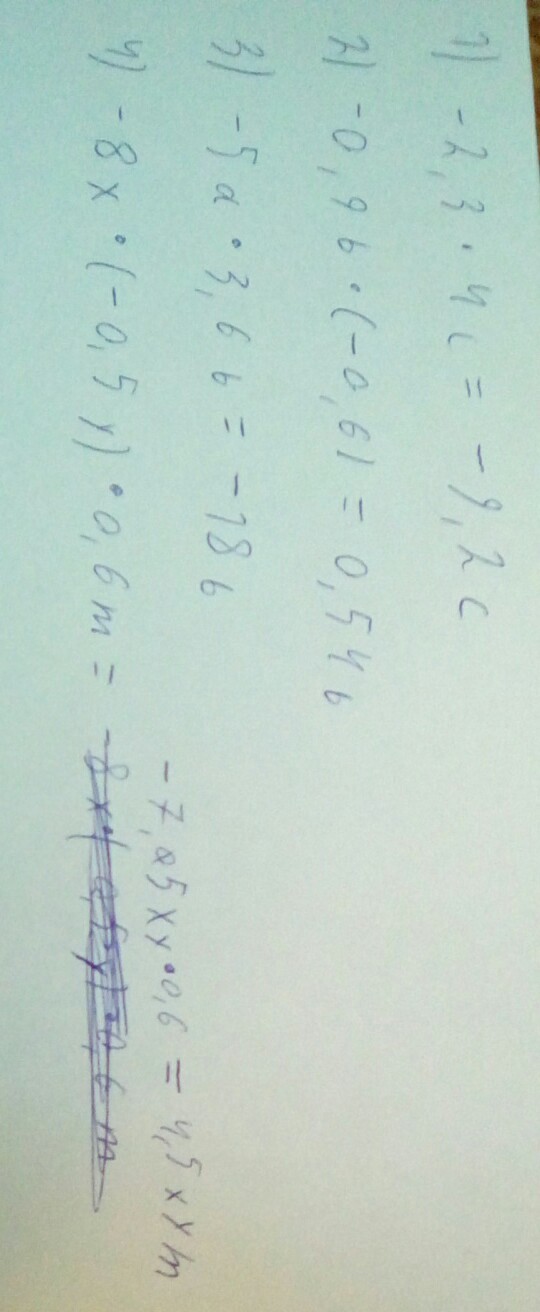 1) -2,3 · 4c = -9,2c
2) -0,9b · (-0,6) = 0,54b
3) -5a · 3,6b = -18b
4) -8x · (-0,5y) · 0,6m = -7,25xy · 0,6 = 4,5xym